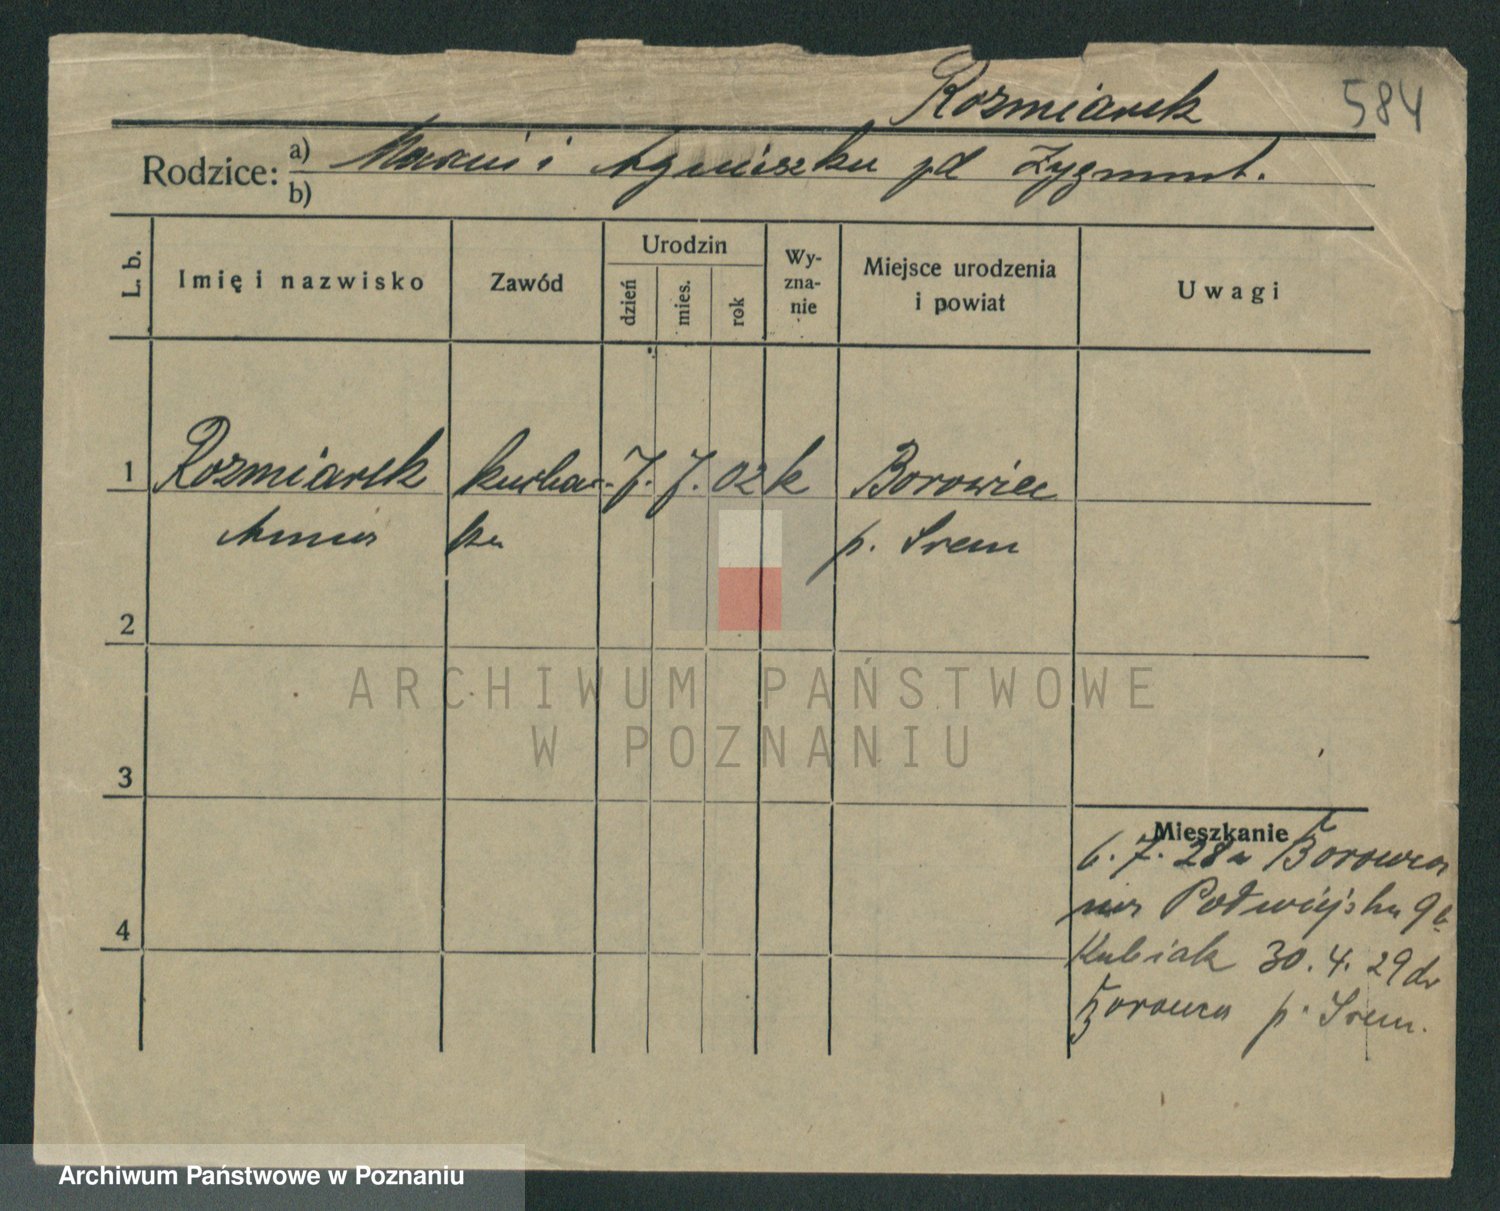 Rozmiarek 584
Rodzice: a) Marcin i Agnieszka zd Zygmunt.
b)
L. b.
Imię i nazwisko
Zawód
Urodzin
dzień
mies.
rok
Wy-
zna-
nie
Miejsce urodzenia
i powiat
Uwagi
1 Rozmiarek kuchar- 7. 7. 02 k Borowiec
ka p. Śrem
2
3
4
Mieszkanie
6. 7. 28 z Borowca
na Podwiejska 9
Kubiak 30. 4. 29 do
Borowca p. Śrem.
ARCHIWUM PAŃSTWOWE
W POZNANIU
Archiwum Państwowe w Poznaniu